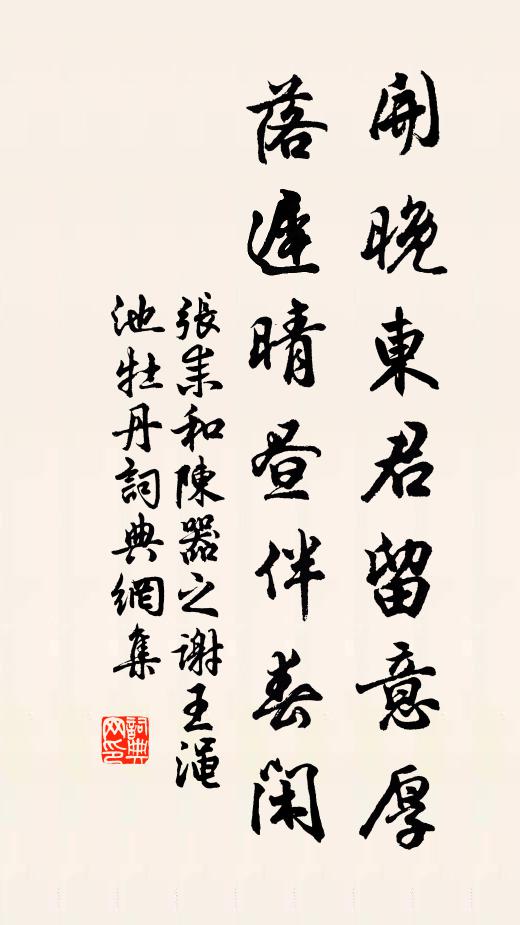 開晚東君留意厚
落遲晴晝伴春閑
張耒和陳器之謝王澠
池牡丹詞典網集
詞典
網印